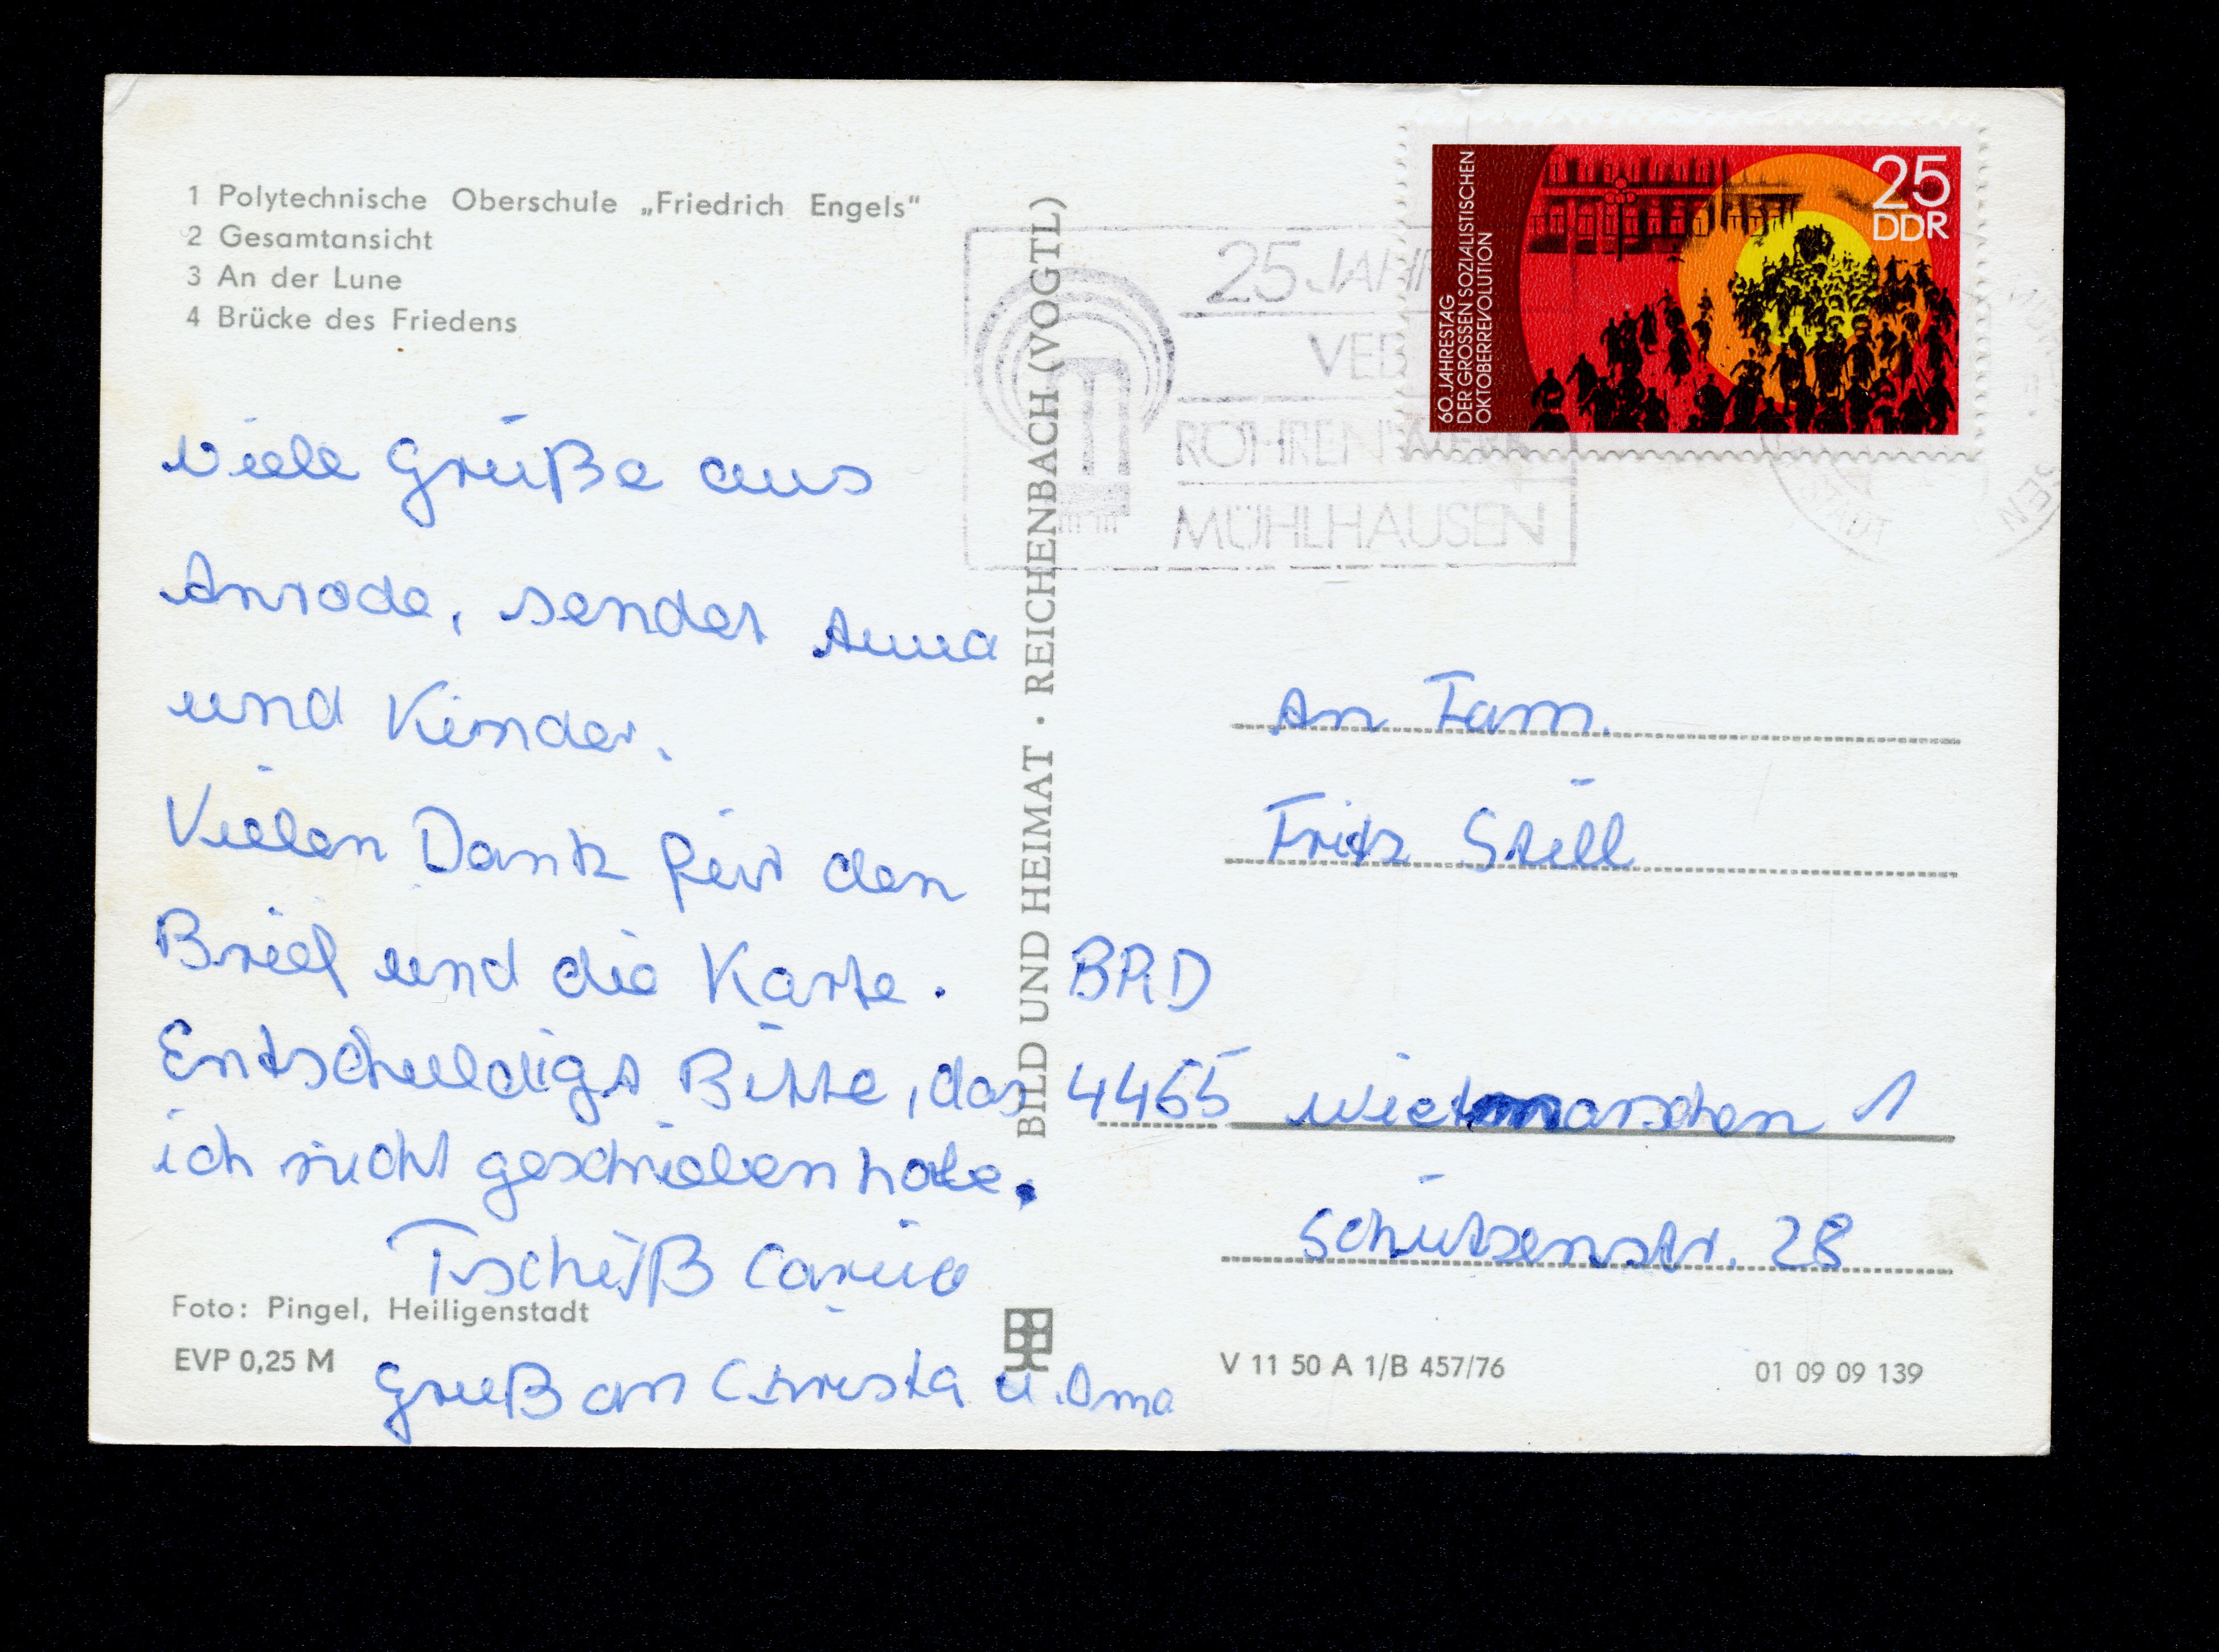 1 Polytechnische Oberschule „Friedrich Engels“
2 Gesamtansicht
3 An der Lune
4 Brücke des Friedens
Viele Grüße aus
Anrode, sendet Anna
und Kinder.
Vielen Dank für den
Brief und die Karte.
Entschuldigt Bitte, das
ich nicht geschrieben habe.
Tschüß
Gruß an Christa u. Oma
Foto: Pingel, Heiligenstadt
EVP 0,25 M
BILD UND HEIMAT · REICHENBACH (VOGTL)
25 JAHR
VEB
RÖHRENWERK
MÜHLHAUSEN
60. JAHRESTAG
DER GROSSEN SOZIALISTISCHEN
OKTOBERREVOLUTION
25
DDR
An Fam.
Fritz Stell
BRD
4455 Wietmarschen 1
Schützenstr. 28
V 11 50 A 1/B 457/76
01 09 09 139